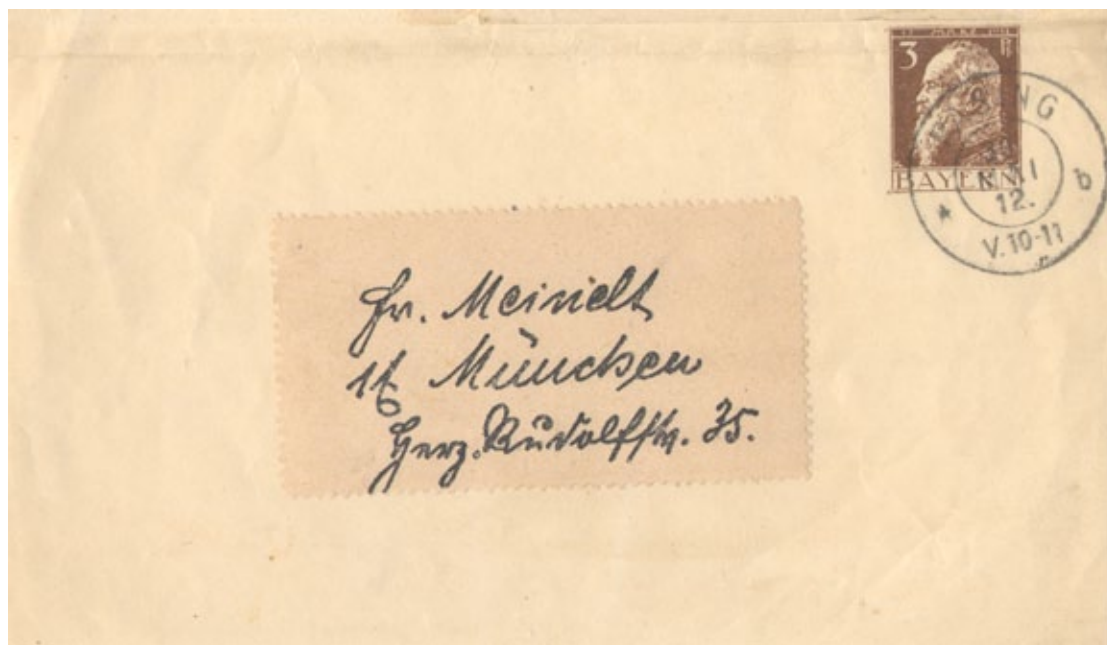 3
BAYERN
12.
b
V.10-11
Fr. Meinelt
München
Herz. Rudolfstr. 35.